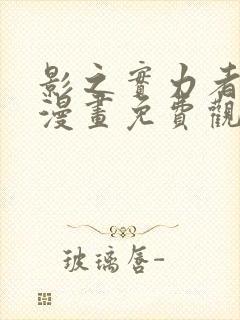 影之實力者
漫畫免費觀
玻璃唇-